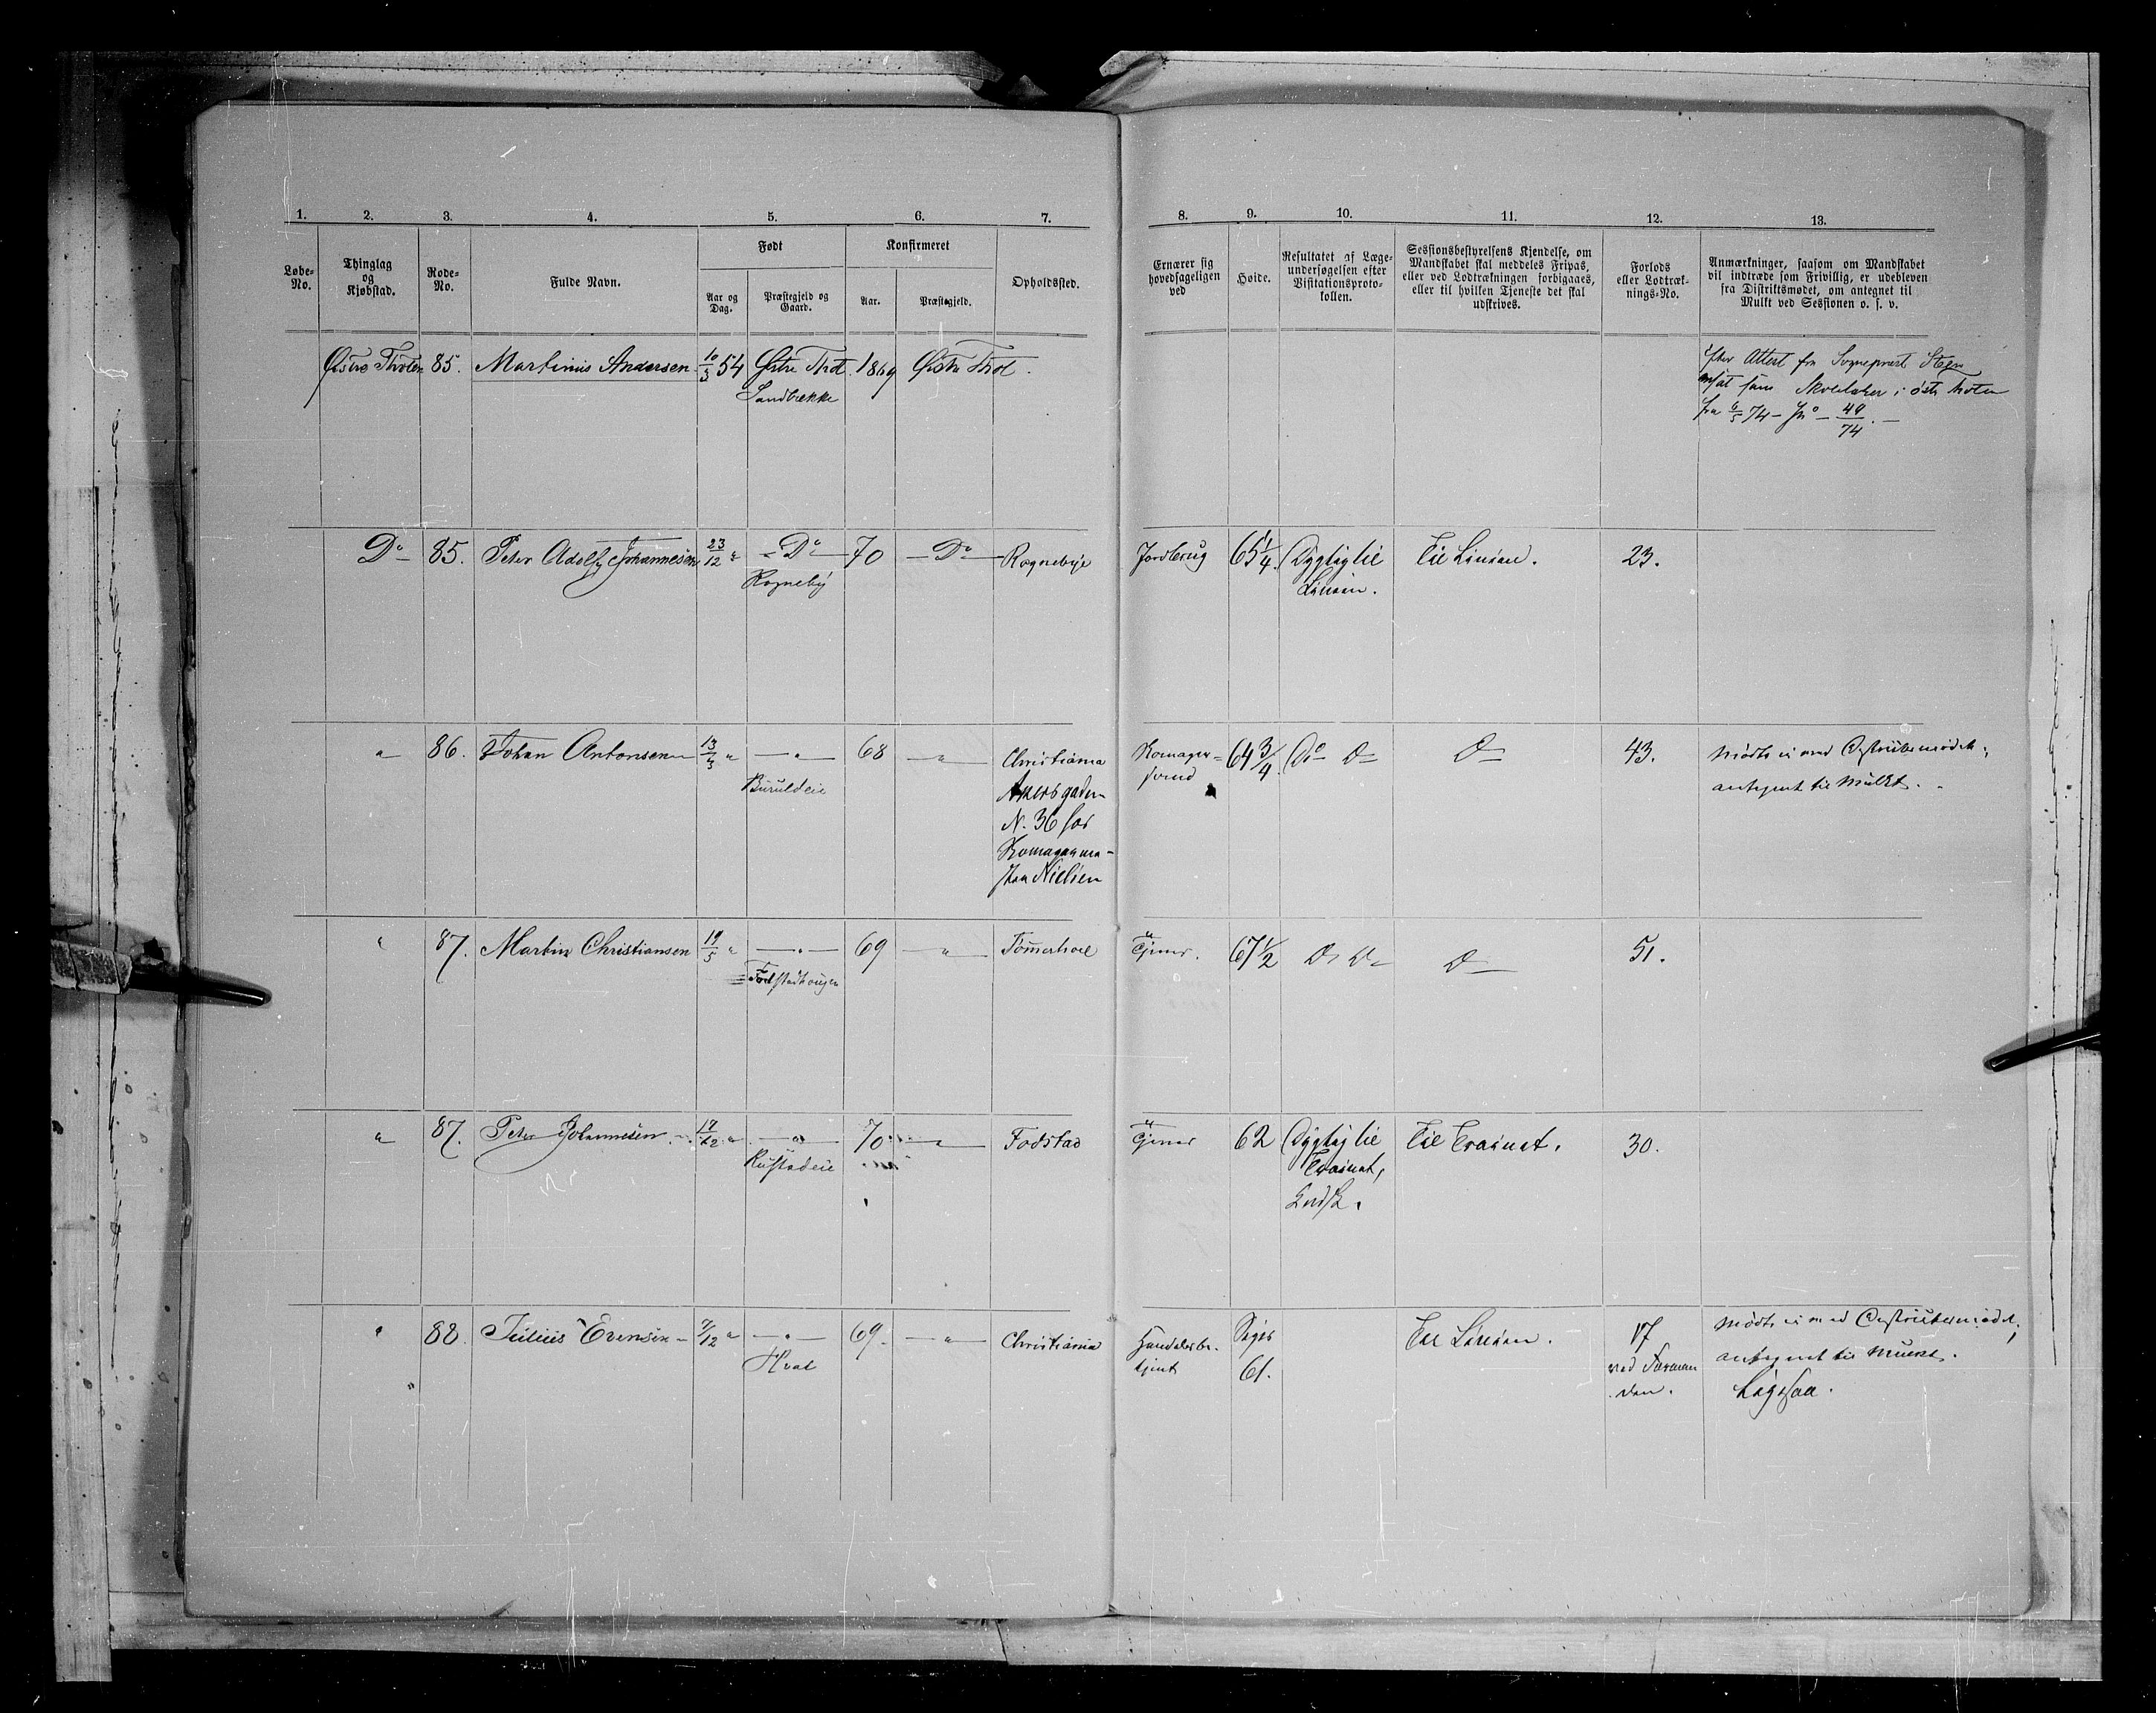 1. 2. 3. 4. 5. 6. 7. 8. 9. 10. 11. 12. 13.
Løbe-No.
Thinglag og Kjøbstad.
Rode-No.
Fulde Navn.
Født
Aar og Dag.
Præstegjeld og Gaard.
Konfirmeret
Aar.
Præstegjeld.
Opholdssted.
Ernærer sig hovedsageligen ved
Høide.
Resultatet af Læge-undersøgelsen efter Visitationsproto-kollen.
Sessionsbestyrelsens Kjendelse, om Mandskabet skal meddeles Fripas, eller ved Lodtrækningen forbigaaes, eller til hvilken Tjeneste det skal udskrives.
Forlods eller Lodtræk-nings-No.
Anmærkninger, saasom om Mandskabet vil indtræde som Frivillig, er udebleven fra Distriktsmødet, om antegnet til Mulkt ved Sessionen o. s. v.
Østre Thoten 85. Martinius Andersen 10/3 54 Østre Thot. 1869 Østre Thot.
Sandbekke
Efter Attest fra Sogneprest Steen
ansat som Skolelærer i østre Thoten
fra 6/5 74 – Jn° – 49/74. –
D° 85. Peter Adolf Johannesen 23/12 " – D° – 70 – D° – Rognebye Jordbrug 65 1/4. Dygtig til Linien. Til Linien. 23.
Rogneby
" 86. Johan Antonsen 13/3 " – " – 68 – " – Christiania
Akersgaden
N. 36 hos
Komagerma-
ker Nielsen
Buruldeie
Komager-
svend
64 3/4. D° D° D° 43. Mødte ei ved Distriktsmødet;
antegnet til Mulkt.
" 87. Martin Christiansen 19/5 " – " – 69 – " – Tømmerhoel Tjener. 67 1/2 D° D° D° 51.
Fodstadhougen
" 87. Peter Johannesen 17/12 " – " – 70 – " – Fodstad Tjener 62 Dygtig til
Trainet,
Til Trainet. 30.
Rustadeie
" 88. Julius Evensen – 7/12 " – " – 69. – " – Christiania Handelsbe-
tjent
Siges
61.
Til Linien. 17
ved Forman
den.
Mødte ei ved Distriktsmødet;
antegnet til Mulkt.
Hval